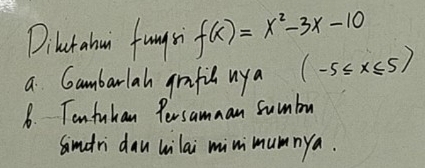 Diketahui fungsi f(x) = x² - 3x - 10
a. Gambarlah grafik nya (-5 ≤ x ≤ 5)
b. Tentukan Persamaan sumbu
simetri dan nilai minimumnya.